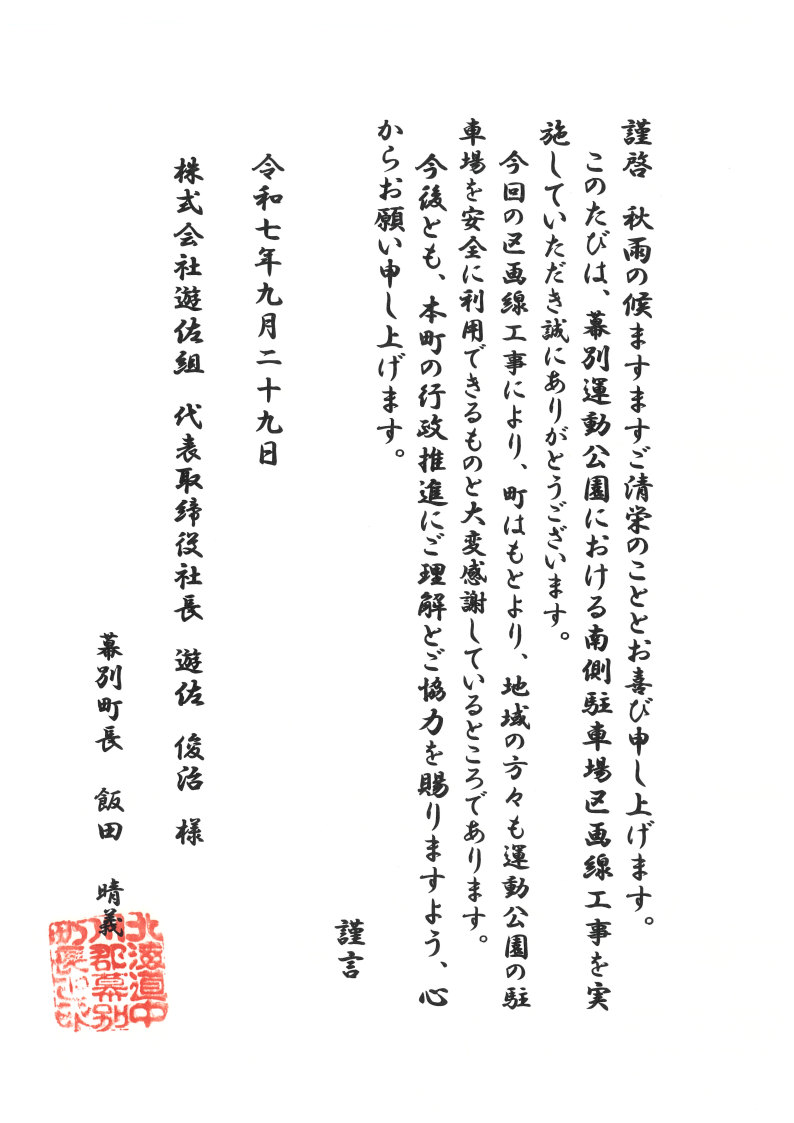 謹啓　秋雨の候ますますご清栄のこととお喜び申し上げます。
このたびは、幕別運動公園における南側駐車場区画線工事を実
施していただき誠にありがとうございます。
今回の区画線工事により、町はもとより、地域の方々も運動公園の駐
車場を安全に利用できるものと大変感謝しているところであります。
今後とも、本町の行政推進にご理解とご協力を賜りますよう、心
からお願い申し上げます。
謹言
令和七年九月二十九日
株式会社遊佐組　代表取締役社長　遊佐　俊治　様
幕別町長　飯田　晴義
北海道中
川郡幕別
町長之印